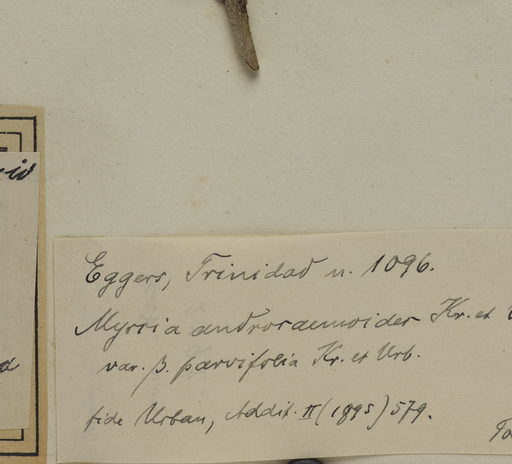 Eggers, Trinidad n. 1096.
Myrcia androsaemoides Kr. et
var. β. parvifolia Kr. et Urb.
fide Urban, Addit. II (1895) 579.